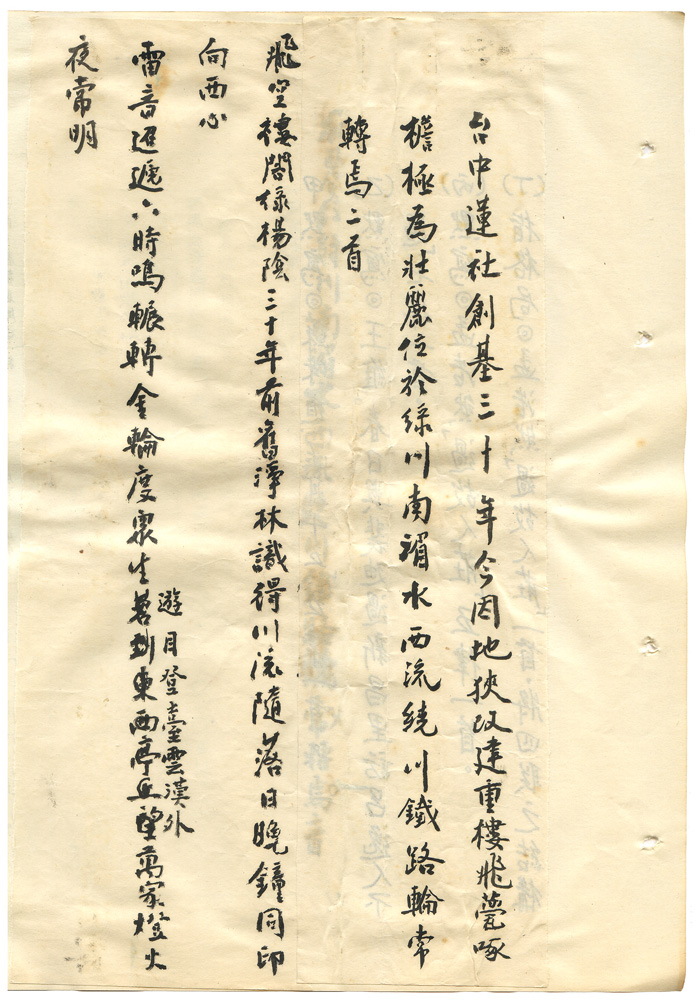 台中蓮社創基三十年今因地狹改建重樓飛甍啄
檐極為壯麗位於綠川南湄水西流繞川鐵路輪常
轉焉二首
飛空樓閣綠楊陰三十年前舊淨林識得川流隨落日晚鐘同印
向西心
雷音迢遞六時鳴輾轉金輪度眾生若到東西亭丘望萬家燈火
遊目登臺雲漢外
夜常明